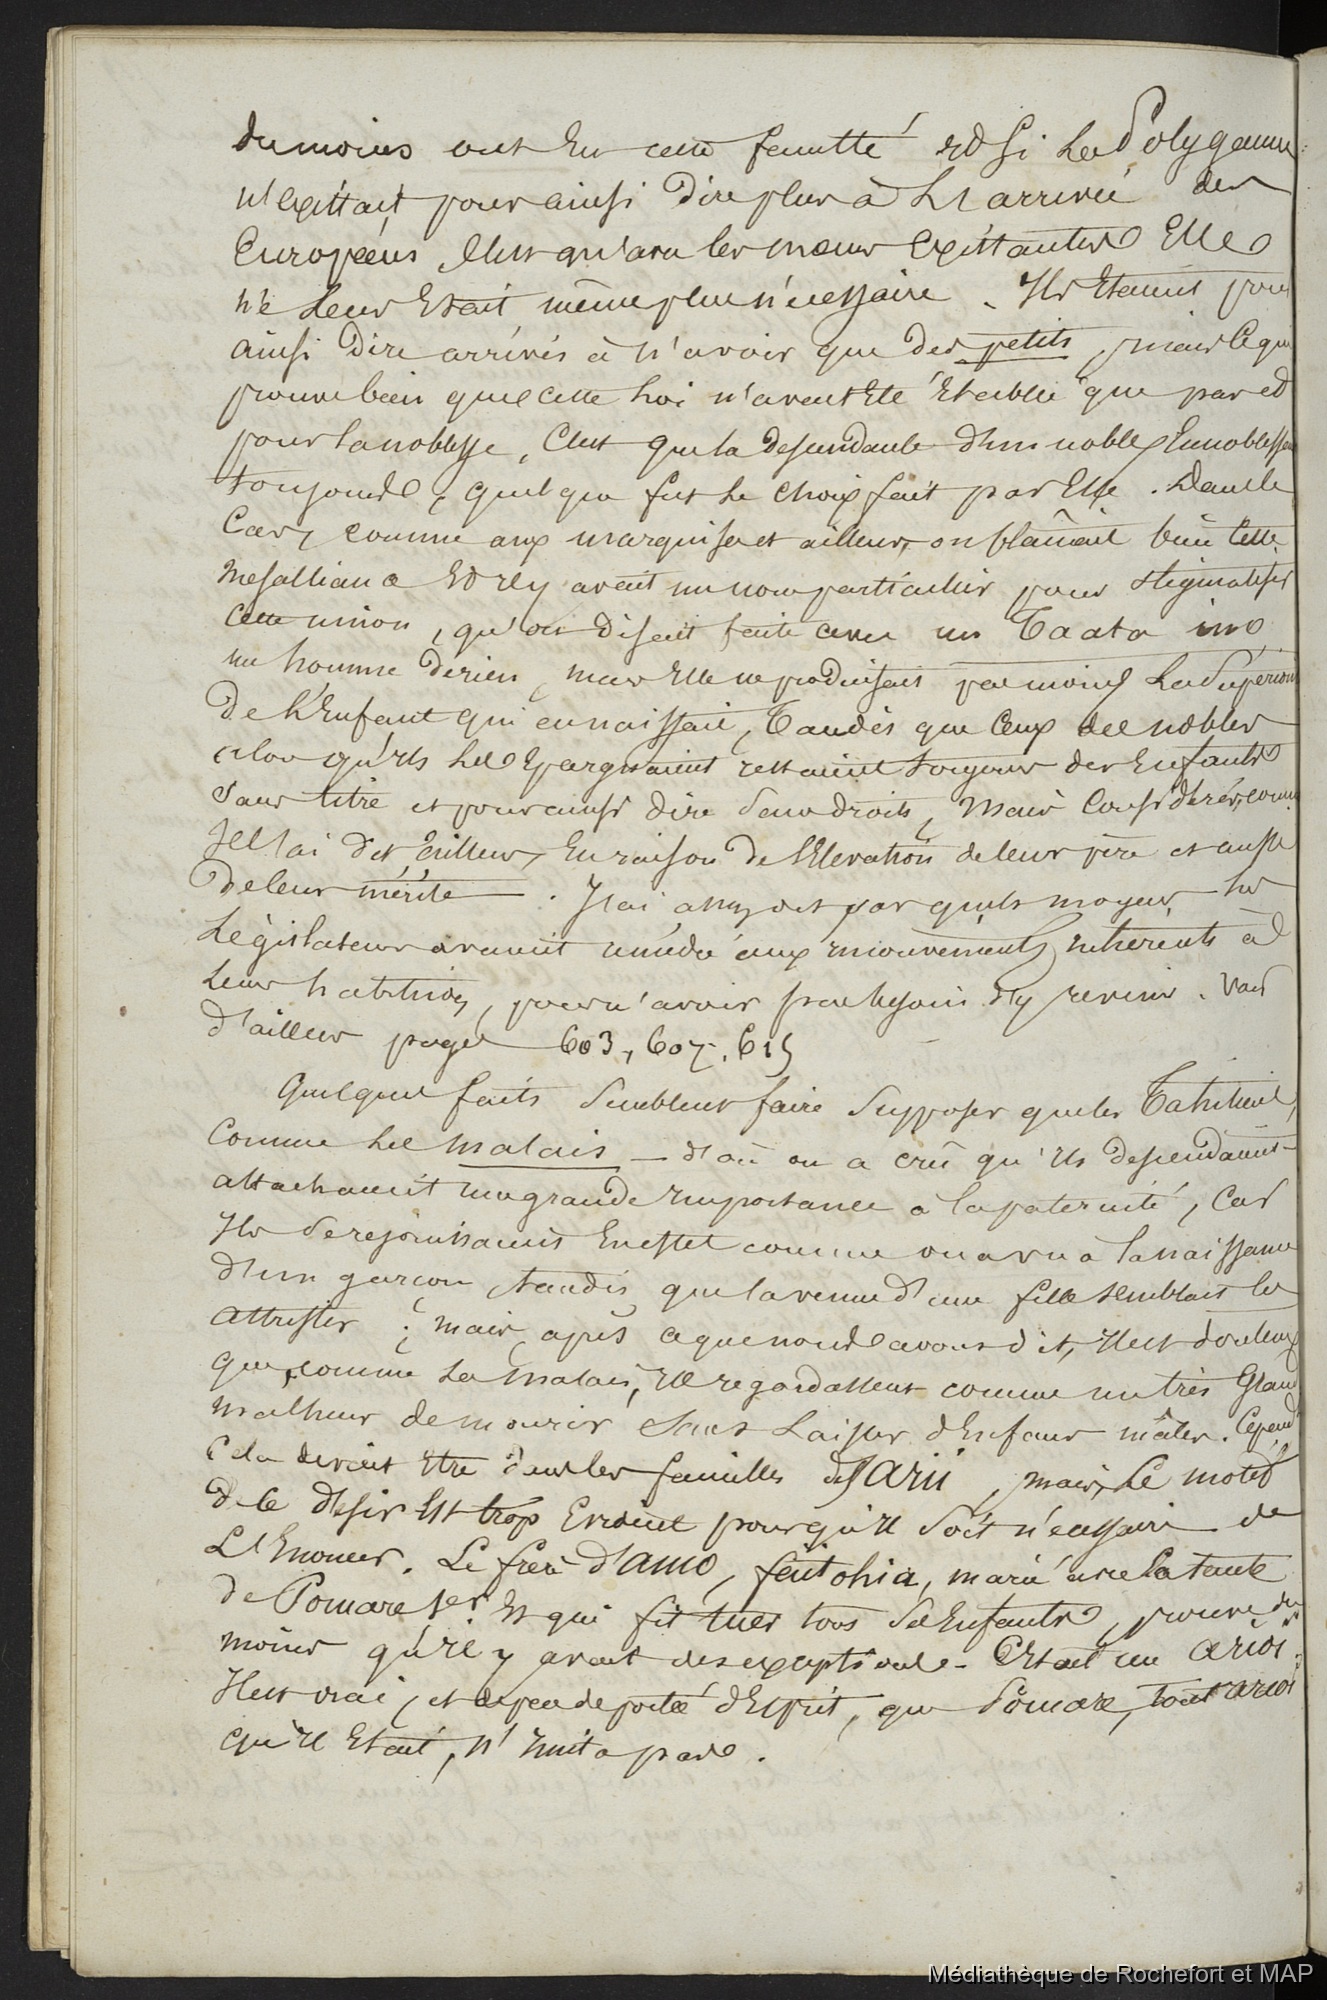 du moins ont eu cette faculté et si la Polygamie
n'existait pour ainsi dire plus à l'arrivée des
Européens, c'est qu'avec les mœurs existantes Elle
ne leur était même plus nécessaire. Ils étaient pour
ainsi dire arrivés à n'avoir que des petits, mais ce qui
prouve bien que cette loi n'avait été établie que par et
pour la noblesse, c'est que la descendante d'un noble, Ennoblissait
toujours, quel que fut le choix fait par Elle. Dans le
Cas, comme aux marquises et ailleurs, on blâmait bien cette
mesalliance et il y avait un nom particulier pour stigmatiser
cette union, qu'on disait faite avec un Taata ino
un homme de rien, mais Elle ne produisait pas moins
de l'Enfant qui en naissait, Tandis que ceux des nobles
alors qu'ils les Epargnaient restaient toujours des Enfants
sans titre et pour ainsi dire sans droits, mais considérés, comme
je l'ai dit ailleurs, en raison de l'Elevation de leur père et aussi
de leur mérite. J'ai assez dit par quels moyens les
Législateurs avaient remédié aux inhérents à
leurs, pour n'avoir pas besoin d'y revenir. Voir
d'ailleurs pages 603, 607, 615
Quelques faits semblent faire supposer que les Tahitiens,
comme les malais — d'où on a crû qu'ils descendaient —
attachaient une grande importance à la paternité, car
Ils se rejouissaient En effet comme on a vu à la naissance
d'un garçon, tandis que la venue d'une fille semblait les
attrister; mais, après ce que nous avons dit, il est douteux
que, comme les Malais, ils regardassent comme un très Grand
malheur de mourir sans laisser d'Enfans mâles. Cepend<sup>t</sup>
Cela devait être dans les familles des Arii, mais, le motif
de ce désir est trop Evident pour qu'il soit nécessaire de
l'Enoncer. Le frère d'Amo, marié avec la tante
de Pomare 1er. Et qui fit tuer tous ses Enfants, prouve du
moins qu'il y avait des exceptions. C'était un arioi
Il est vrai, et de peu de portée d'Esprit, que Pomare, tout arioi
qu'il était, n'imita pas.
Médiathèque de Rochefort et MAP